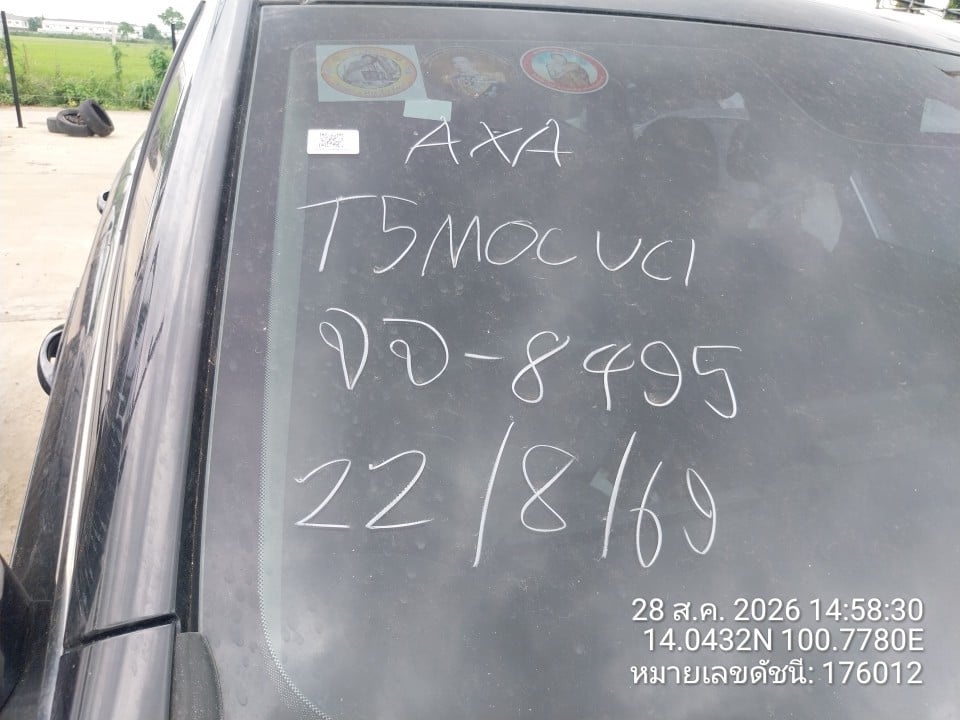 AXA
T5MOCUCI
ขอ-8495
22/8/69
28 ส.ค. 2026 14:58:30
14.0432N 100.7780E
หมายเลขดัชนี: 176012